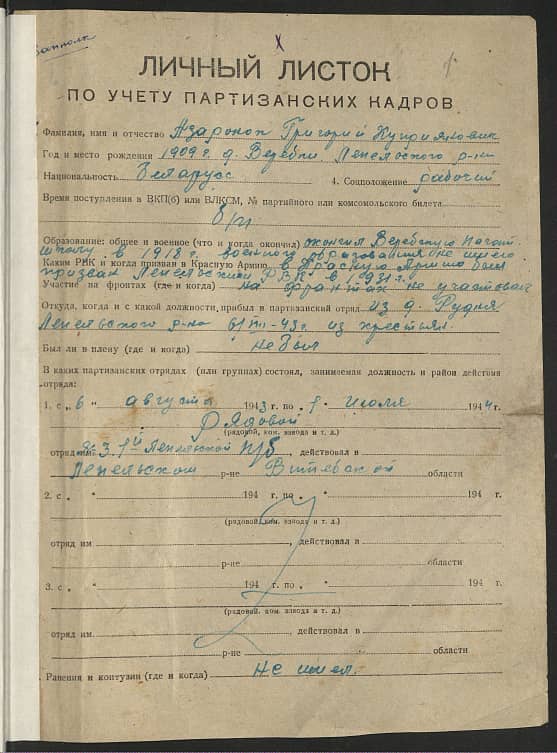 Заполн
X
ЛИЧНЫЙ ЛИСТОК
ПО УЧЕТУ ПАРТИЗАНСКИХ КАДРОВ
Фамилия, имя и отчество Азаронок Григорий Куприянович
Год и место рождения 1909 г. д. Веребки Лепельского р-на
Национальность Беларусс 4. Соцположение рабочий
Время поступления в ВКП(б) или ВЛКСМ, № партийного или комсомольского билета
б/п
Образование: общее и военное (что и когда окончил) окончил Веребскую Начал.
школу в 1918 г. военного образования не имею
Каким РВК и когда призван в Красную Армию в Красную Армию был
призван Лепельским РВК в 1931 г.
Участие на фронтах (где и когда) на фронтах не участвовал
Откуда, когда и с какой должности, прибыл в партизанский отряд из д. Рудня
Лепельского р-на 6/VIII-43 г. из крестьян
Был ли в плену (где и когда) не был
В каких партизанских отрядах (или группах) состоял, занимаемая должность и район действия
отряда:
1. с „ 6 " августа 1943 г. по „ 1 " июля 1944 г.
рядовой
(рядовой, ком. взвода и т. д.)
отряд № 3. 1й Лепельской п/б, действовал в
Лепельском р-не Витебской области
2. с „ " 194 г. по „ " 194 г.
(рядовой, ком. взвода и т. д.)
отряд им , действовал в
р-не области
3. с „ " 194 г. по „ " 194 г.
(рядовой, ком. взвода и т. д.)
отряд им , действовал в
р-не области
Ранения и контузии (где и когда) не имел.